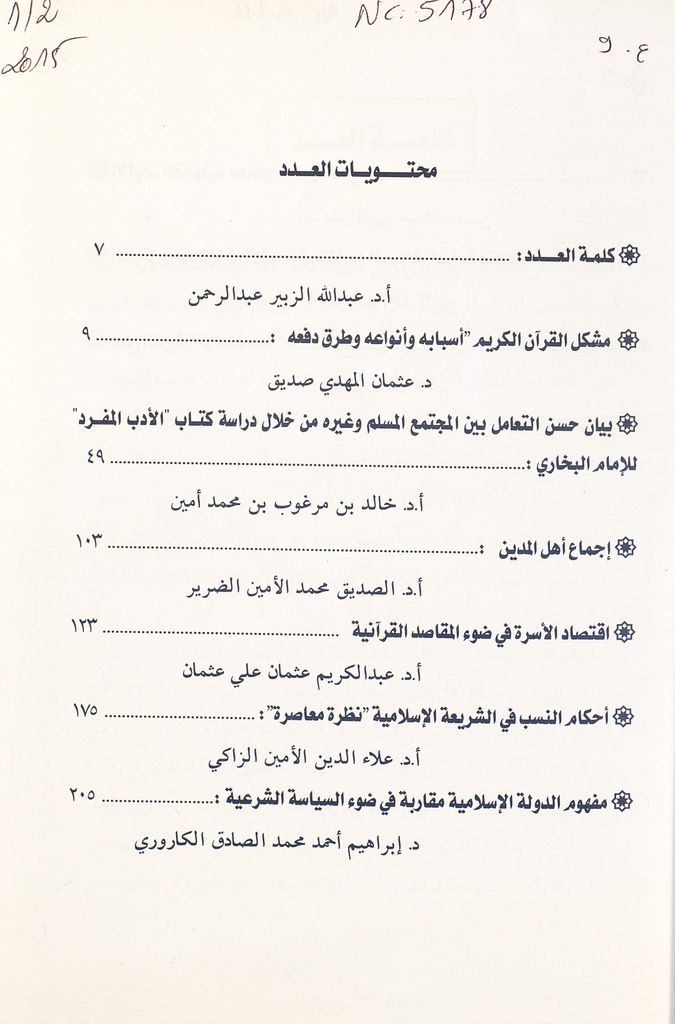 1/2
NC: 5178
2015
ع . 9
محتـــويـات العــدد
كلمـة العـــدد : ........ ٧
أ.د. عبدالله الزبير عبدالرحمن
مشكل القرآن الكريم "أسبابه وأنواعه وطرق دفعه : ........ ٩
د. عثمان المهدي صديق
بيان حسن التعامل بين المجتمع المسلم وغيره من خلال دراسة كتـاب "الأدب المفـرد"
للإمام البخاري : ........ ٤٩
أ.د. خالد بن مرغوب بن محمد أمين
إجماع أهل المدين : ........ ١٠٣
أ.د. الصديق محمد الأمين الضرير
اقتصاد الأسرة في ضوء المقاصد القرآنية ........ ١٢٣
أ.د. عبدالكريم عثمان علي عثمان
أحكام النسب في الشريعة الإسلامية "نظرة معاصرة" : ........ ١٧٥
أ.د. علاء الدين الأمين الزاكي
مفهوم الدولة الإسلامية مقاربة في ضوء السياسة الشرعية : ........ ٢٠٥
د. إبراهيم أحمد محمد الصادق الكاروري